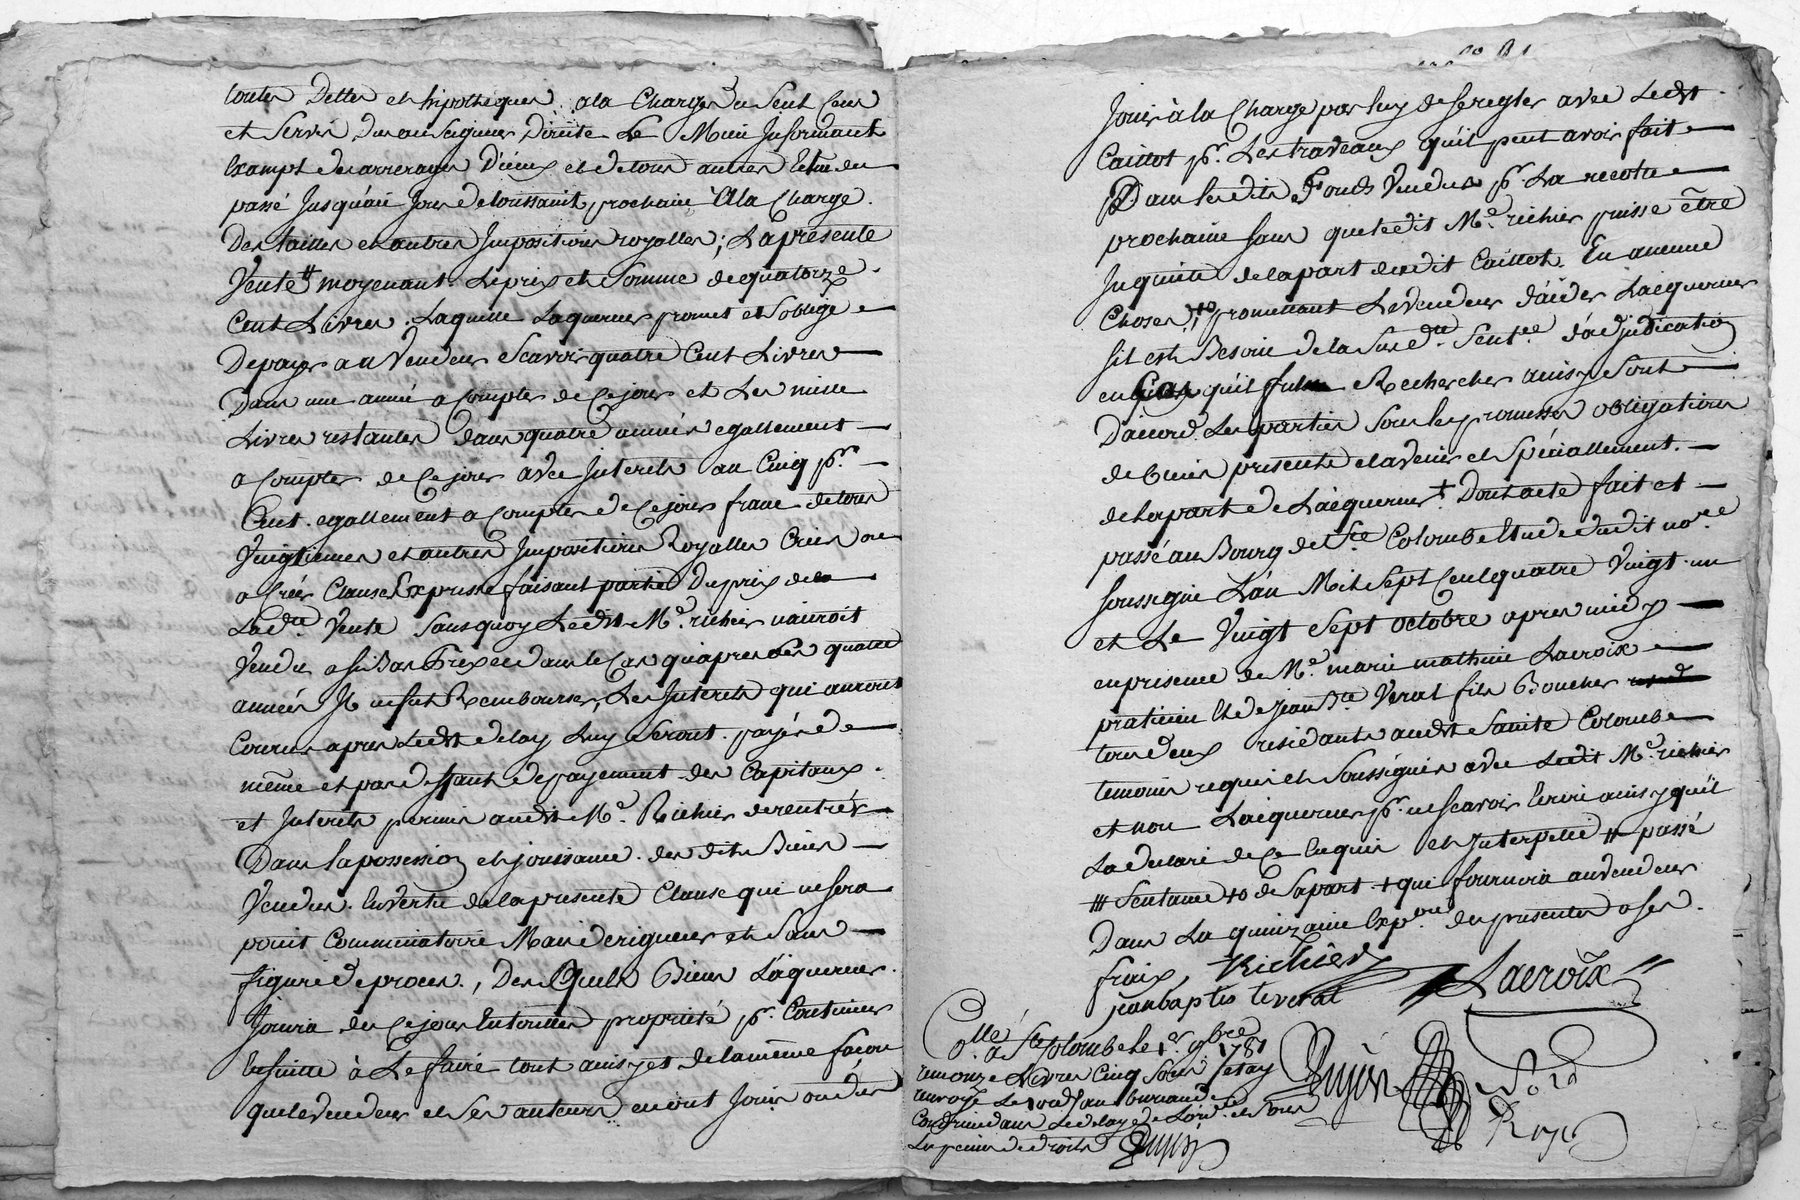 toutes Dettes et hipotheques. a la Charge du Seul Cens
et Servis Du au Seigneur Directe Le Meme Informant
Exampt des arrerages D'iceux et de tous autres Echu du
passé Jusqu'au Jour de toussaint prochain A la Charge.
Des tailles et autres Impositions royalles; La présente
Vente # moyenant Le prix et Somme de quatorze.
Cent Livres. Laquelle Laquereur promet et s'oblige
De payer au Vendeur Scavoir quatre Cent Livres
Dans une année a Compter de Ce jour et Les mille
Livres restantes dans quatre années egallement
a Compter de Ce jour avec Interets au Cinq pr.
Cent. egallement a Compter de Ce jour franc de tous
Vingtiemes et autres Impositions Royalles Créés ou
a Créer Clause Expresse faisant partie Du prix de la
Lad.te Vente Sans quoy Ledit M.e richier n'auroit
Vendu a Si Bas Prix et dans le Cas qu'apres les quatre
années Il ne fut Rembourser, Les Interets qui auront
Courus apres Ledit delay Luy Seront payés de
même et par deffaut de payement des Capitaux.
et Interets permis audit M.e Richier de rentrér
Dans la possession et jouissance des dits Biens
Vendus. En vertu de la presente Clause qui ne sera
point Comminatoire Mais de rigueur et Sans
figure de proces., Des Quels Biens L'aquereur.
Jouira des Ce jour En toutte propriété pr. Continuer
Ensuitte à Le faire tout ainsy et de la même façon
que le vendeur et Ses auteurs en ont Joui ou du
Jouir à la Charge par luy de se regler avec Ledit
Caillot pr. Les travaux qu'il peut avoir fait
Dans lesdits Fonds Vendus pr. La recolte
prochaine sans que ledit M.e richier puisse être
Inquieté de la part dudit Caillot. En aucune
Choses, +o promettant Le vendeur d'aider Lacquereur
s'il est Besoin de la Sus d.te Sent.ce d'adjudication
en Cas qu'il fut Rechercher ainsy Sont
D'accord Les parties Sous les promesses obligations
de biens presents et avenir et Spéciallement.
de la part de L'acquereur + Dont acte fait et
passé au Bourg de S.te Colombe Etude dudit no.re
soussigné L'an Mil Sept Cent quatre Vingt-un
et Le Vingt Sept octobre apres midy
en presence de M.e marie mathieu Lacroix
praticien Et de Jean B.te Verat fils Boucher
tous deux residants audit Sainte Colombe
temoins requis et Soussignés avec Ledit M.e richier
et non L'acquereur pr. ne scavoir Ecrire ainsy qu'il
La declaré de Ce Enquis et Interpellé # passé
# Sentame +o de Sa part + qui fournira au vendeur
Dans La quinzaine Exp.on des presentes a Ses.
fraix, Richier Lacroix
jean baptiste verat
Coll.é à S.te Colombe le 1.er 9bre 1781
renvoyé Le
Guyot